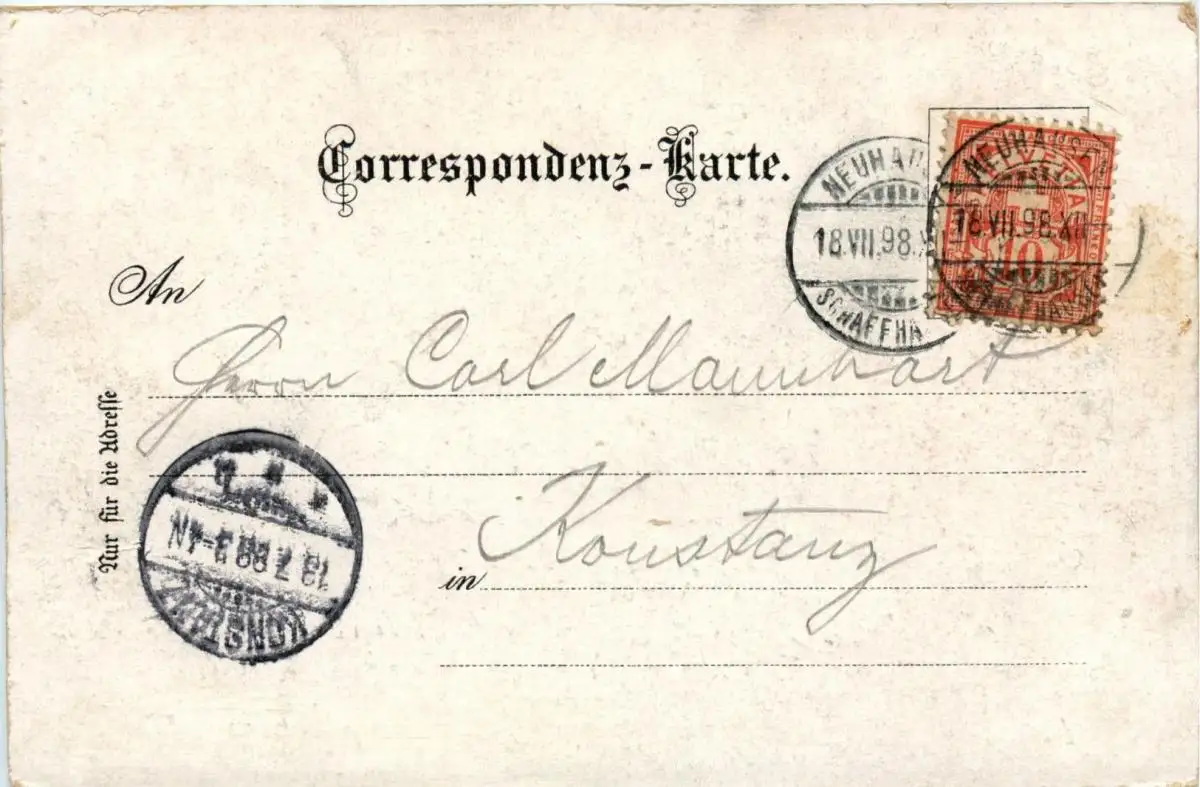 Correspondenz-Karte.
NEUHAU
18.VII.98.X
SCHAFFHA
NEUHAUSE
18.VII.98.XII
10
An
Herrn Carl Mannhart
Nur für die Adresse
in Konstanz
KONSTANZ
18.7.98 3-4N